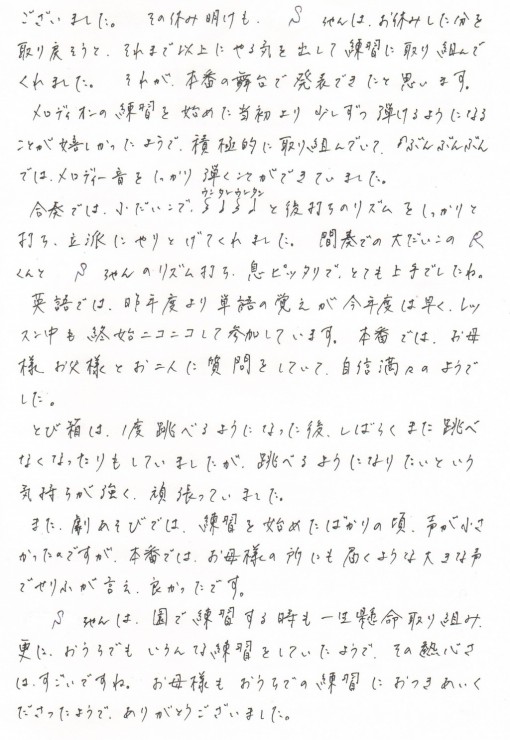 ございました。 その休み明けも、 S ちゃんは、お休みした分を
取り戻そうと、それまで以上にやる気を出して練習に取り組んで
くれました。 それが、本番の舞台で発表できたと思います。
メロディオンの練習を始めた当初より少しずつ弾けるようになる
ことが嬉しかったようで、積極的に取り組んでいて、♪ぶんぶんぶん
では、メロディー音をしっかり弾くことができていました。
ウンタンウンタン
合奏では、小だいこで、と後打ちのリズムをしっかりと
打ち、立派にやりとげてくれました。 間奏での大だいこのR
くんと S ちゃんのリズム打ち、息ピッタリで、とても上手でしたね。
英語では、昨年度より単語の覚えが今年度は早く、レッ
スン中も終始ニコニコして参加しています。 本番では、お母
様お父様とお二人に質問をしていて、自信満々のようで
した。
とび箱は、1度跳べるようになった後、しばらくまた跳べ
なくなったりもしていましたが、跳べるようになりたいという
気持ちが強く、頑張っていました。
また、劇あそびでは、練習を始めたばかりの頃、声が小さ
かったのですが、本番では、お母様の所にも届くような大きな声
でせりふが言え、良かったです。
S ちゃんは、園で練習する時も一生懸命取り組み、
更に、おうちでもいろんな練習をしていたようで、その熱心さ
は、すごいですね。 お母様もおうちでの練習におつきあいく
ださったようで、ありがとうございました。